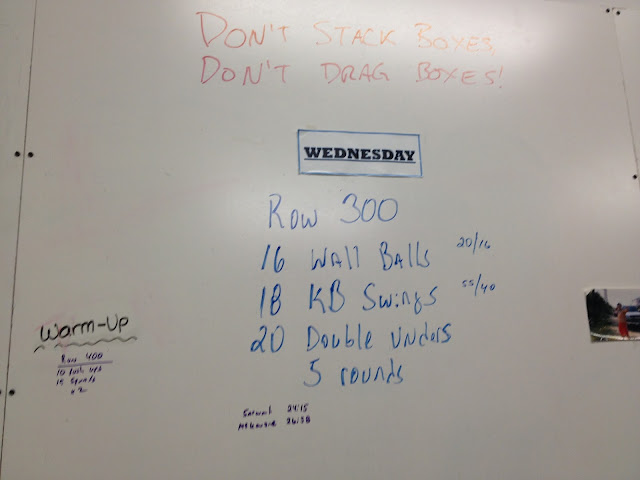 DON'T STACK BOXES,
DON'T DRAG BOXES!
WEDNESDAY
Row 300
16 Wall Balls 20/16
18 KB Swings 55/40
20 Double Unders
5 rounds
Warm-Up
Row 400
10 Push ups
15 Squats
x 2
24:15
26:38